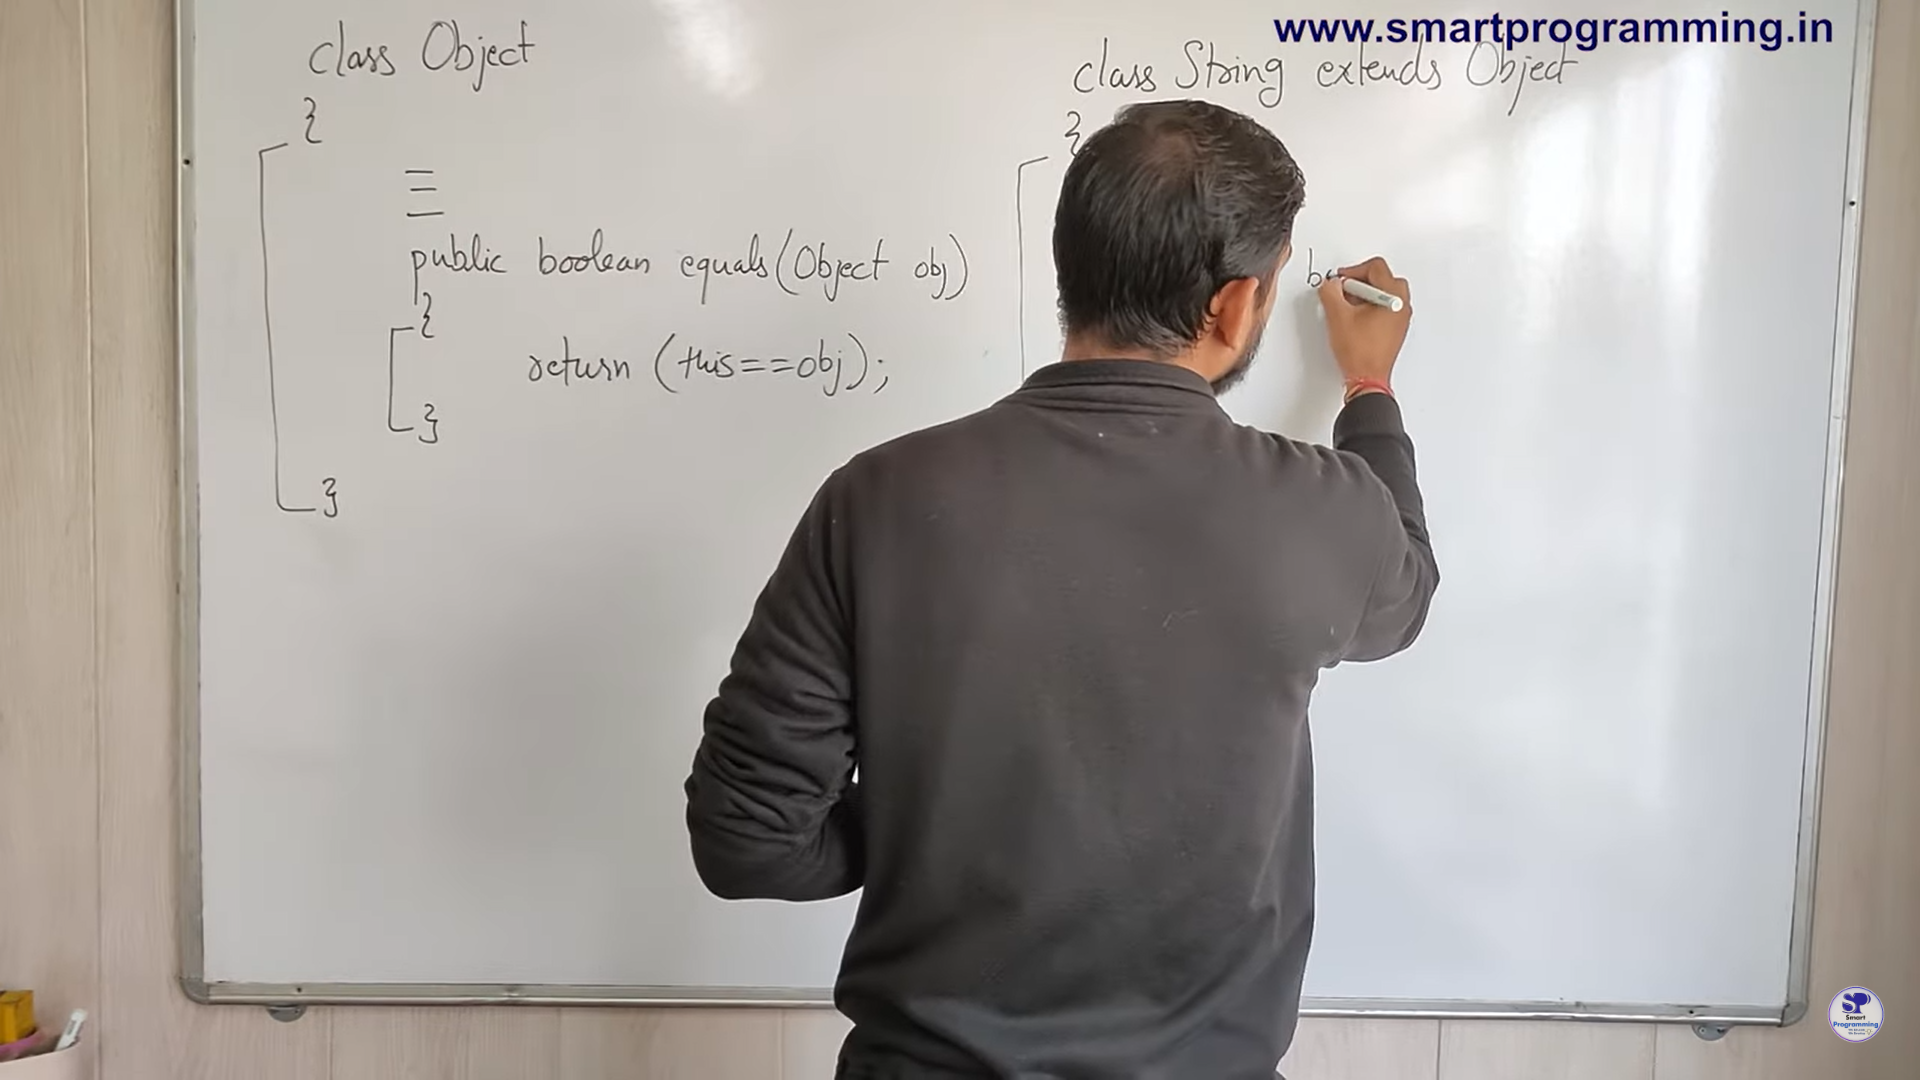 www.smartprogramming.in
class Object
{
public boolean equals(Object obj)
{
return (this==obj);
}
}
class String extends Object
{
SP
Smart
Programming